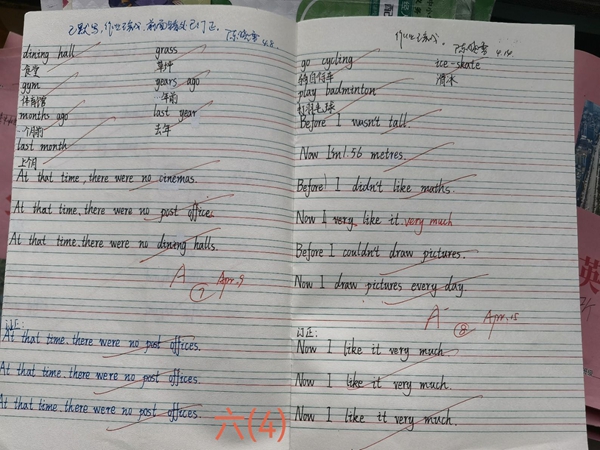 已默写,作业已改公,前面错处已订正。
陈晓雪 4.8.
dining hall
grass
食堂
草坪
gym
years ago
体育馆
年前
months ago
last year
个月前
去年
last month
上个月
At that time, there were no cinemas.
At that time, there were no post office.
At that time, there were no dining halls.
A
⑦
Apr. 9
订正:
At that time, there were no post offices.
At that time, there were no post offices.
At that time, there were no post offices.
六(4)
陈晓雪 4.14.
go cycling
ice-skate
骑自行车
滑冰
play badminton
打羽毛球
Before I wasn't tall.
Now I'm 1.56 metres.
Before I didn't like maths.
Now I very like it. very much
Before I couldn't draw pictures.
Now I draw pictures every day.
A-
⑧
Apr. 15
订正:
Now I like it very much.
Now I like it very much.
Now I like it very much.
英